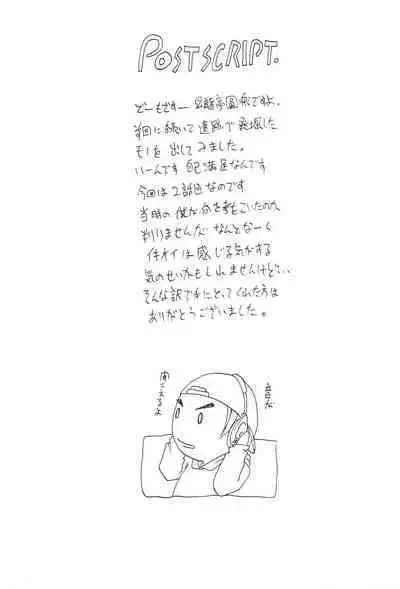 POSTSCRIPT.
どーもですー 昇龍亭圓船ですよ。
前回に続いて遺跡で発掘した
モノを出してみました。
いーんです 自己満足なんです
今回は2部目なのです
当時の僕が何を
判りませんが なんとなーく
イキオイは感じる気がする
気のせいかもしれませんけど…
そんな訳で手にとってくれた方は
ありがとうございました。
聞こえるよ